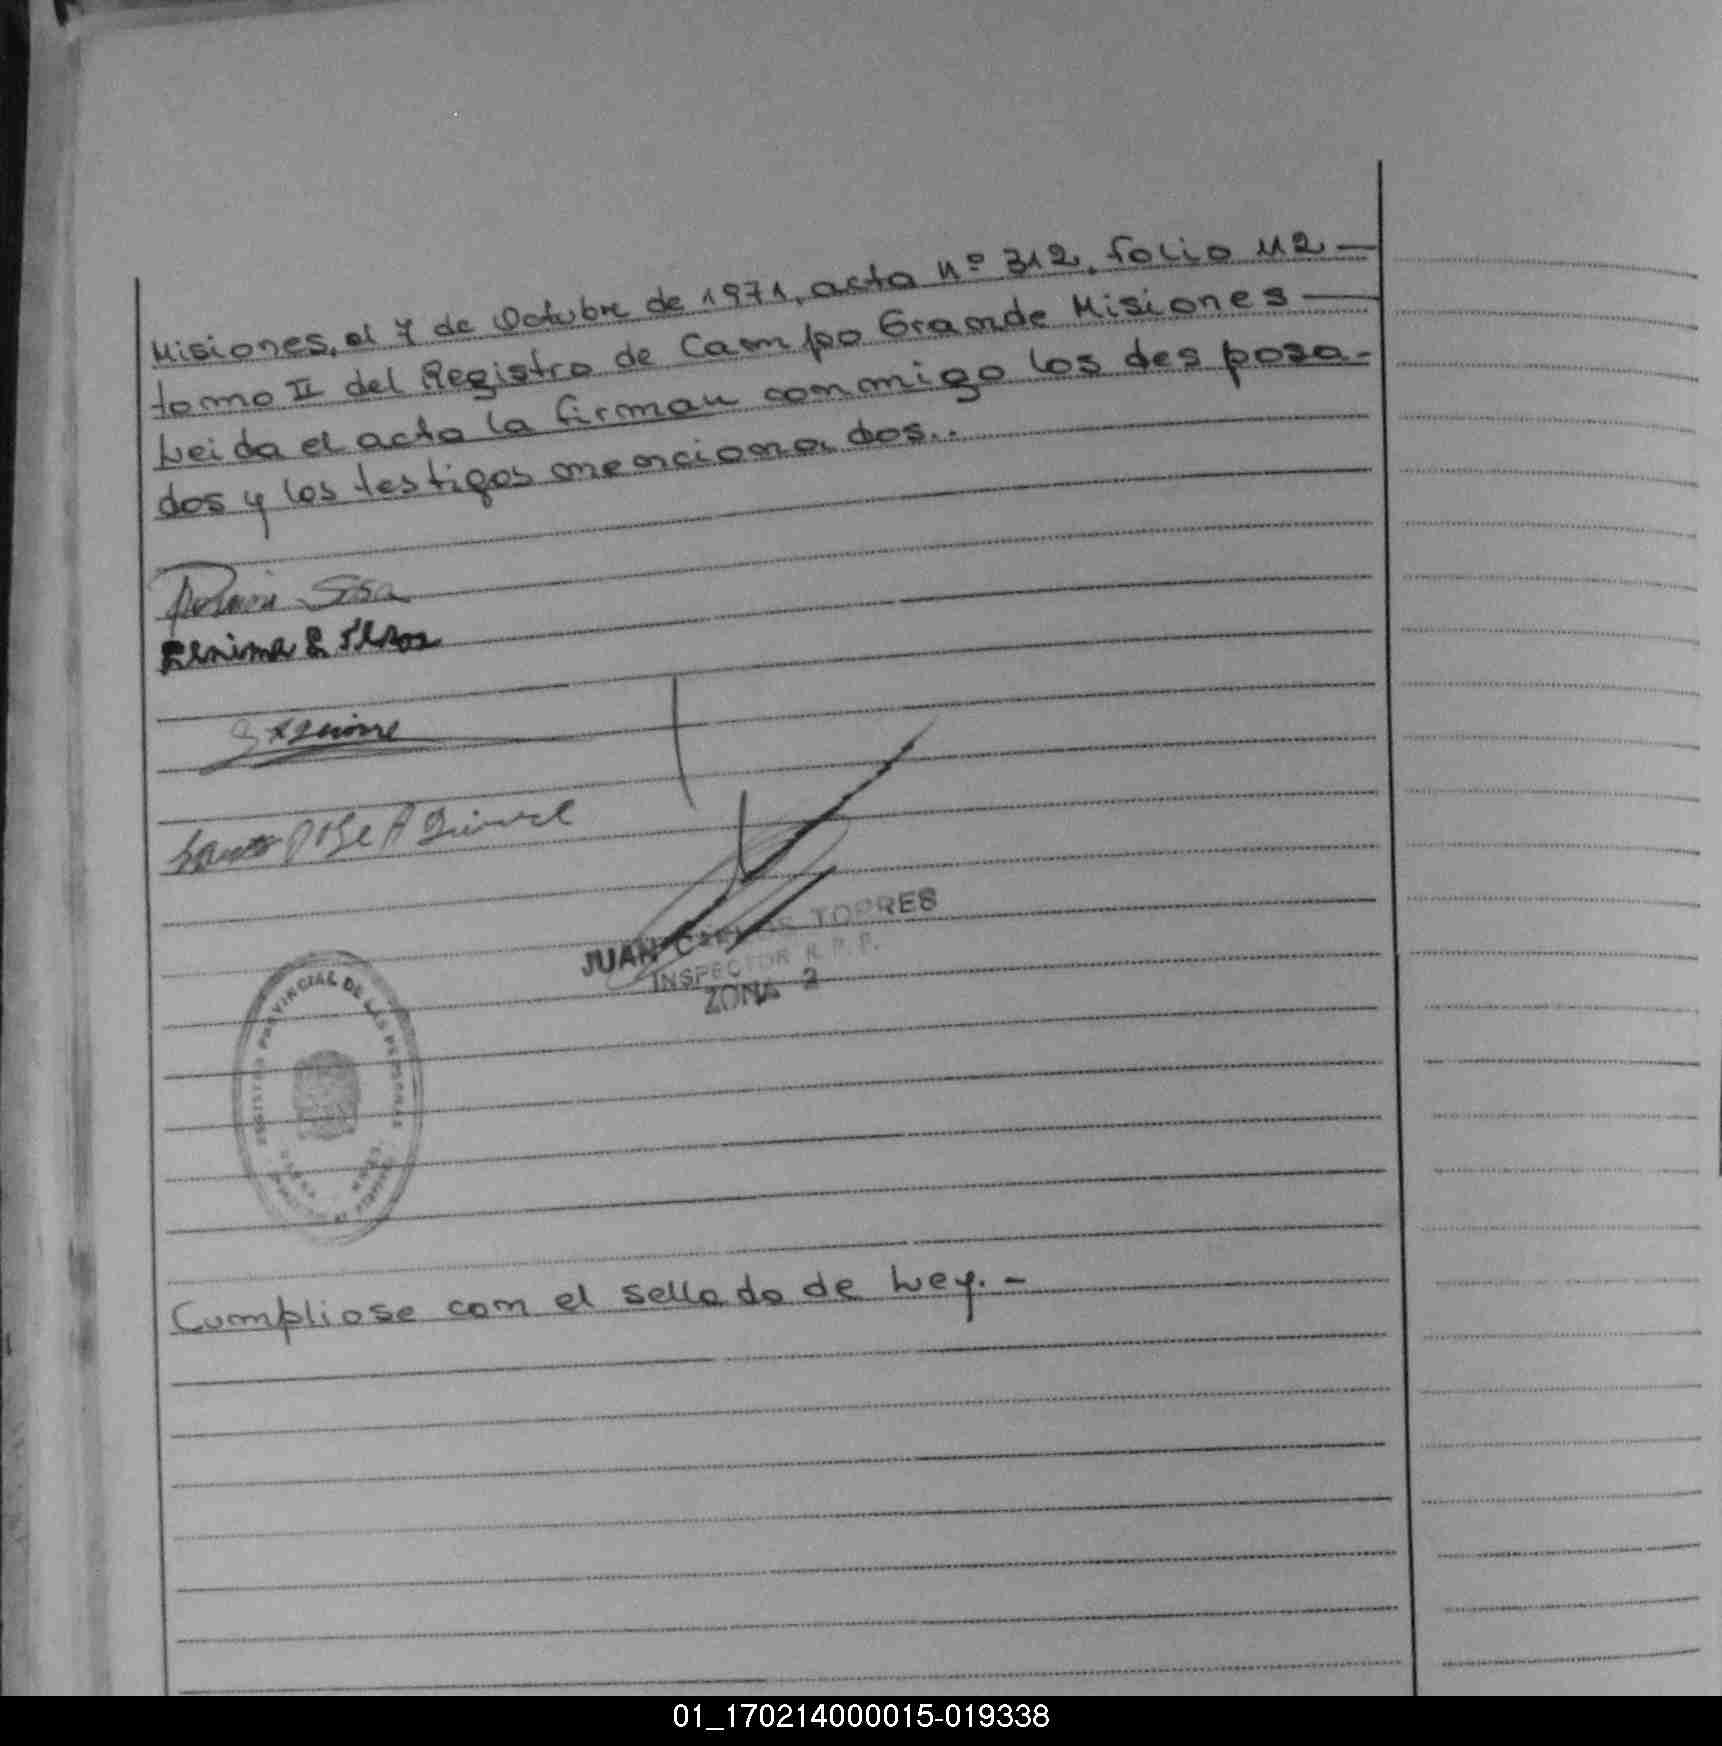 Misiones, el 7 de Octubre de 1971, acta nº 312, folio 112 —
tomo II del Registro de Campo Grande Misiones —
Leida el acta la firman conmigo los desposa-
dos y los testigos mencionados..
Sosa
JUAN CARLOS TORRES
INSPECTOR R. P. P.
ZONA 2
REGISTRO PROVINCIAL DE LAS PERSONAS
Cumpliose con el sellado de Ley. -
01_170214000015-019338